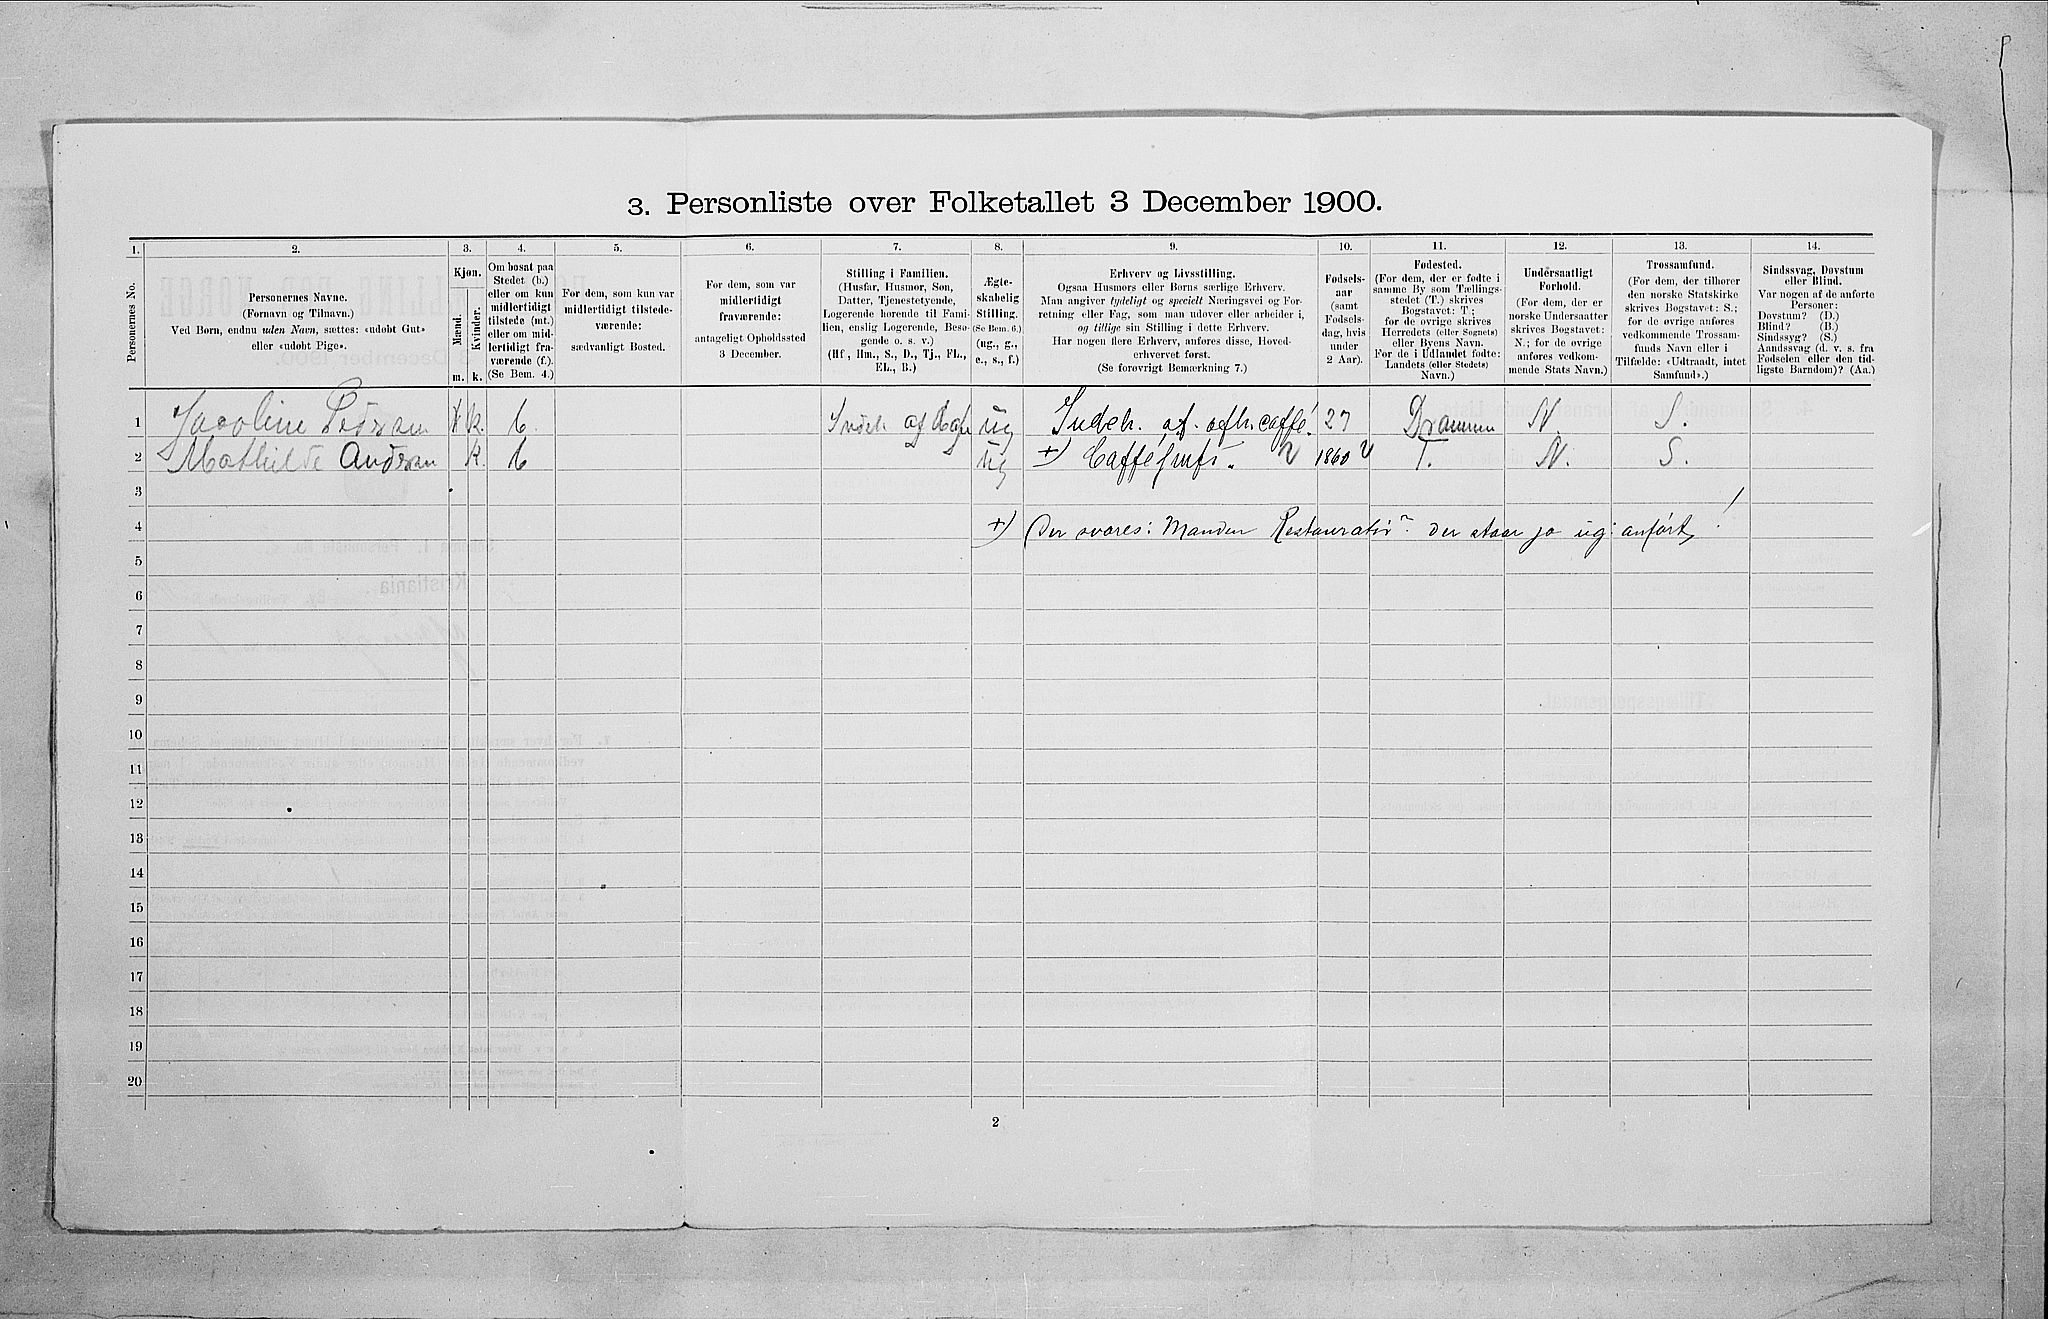 3. Personliste over Folketallet 3 December 1900.
1. 2. 3. 4. 5. 6. 7. 8. 9. 10. 11. 12. 13. 14.
Personernes No.
Personernes Navne.
(Fornavn og Tilnavn.)
Ved Børn, endnu uden Navn, sættes: «udøbt Gut»
eller «udøbt Pige».
Kjøn.
Mænd.
Kvinder.
m. k.
Om bosat paa
Stedet (b.)
eller om kun
midlertidigt
tilstede (mt.)
eller om mid-
lertidigt fra-
værende (f.).
(Se Bem. 4.)
For dem, som kun var
midlertidigt tilstede-
værende:
sædvanligt Bosted.
For dem, som var
midlertidigt
fraværende:
antageligt Opholdssted
3 December.
Stilling i Familien.
(Husfar, Husmor, Søn,
Datter, Tjenestetyende,
Logerende hørende til Fami-
lien, enslig Logerende, Besø-
gende o. s. v.)
(Hf, Hm., S., D., Tj., FL.,
EL., B.)
Ægte-
skabelig
Stilling.
(Se Bem. 6.)
(ug., g.,
e., s., f.)
Erhverv og Livsstilling.
Ogsaa Husmors eller Børns særlige Erhverv.
Man angiver tydeligt og specielt Næringsvei og For-
retning eller Fag, som man udøver eller arbeider i,
og tillige sin Stilling i dette Erhverv.
Har nogen flere Erhverv, anføres disse, Hoved-
erhvervet først.
(Se forøvrigt Bemærkning 7.)
Fødsels-
aar
(samt
Fødsels-
dag, hvis
under
2 Aar).
Fødested.
(For dem, der er fødte i
samme By som Tællings-
stedet (T.) skrives
Bogstavet: T.;
for de øvrige skrives
Herredets (eller Sognets)
eller Byens Navn.
For de i Udlandet fødte:
Landets (eller Stedets)
Navn.)
Undersaatligt
Forhold.
(For dem, der er
norske Undersaatter
skrives Bogstavet:
N.; for de øvrige
anføres vedkom-
mende Stats Navn.)
Trossamfund.
(For dem, der tilhører
den norske Statskirke
skrives Bogstavet: S.;
for de øvrige anføres
vedkommende Trossam-
funds Navn eller i
Tilfælde: «Udtraadt, intet
Samfund».)
Sindssvag, Døvstum
eller Blind.
Var nogen af de anførte
Personer:
Døvstum? (D.)
Blind? (B.)
Sindssyg? (S.)
Aandssvag (d. v. s. fra
Fødselen eller den tid-
ligste Barndom)? (Aa.)
1 Jacoline k. b. af ug Indeh. af caffé. 27 Drammen N. S.
2 Mathilde Andersen k b ug +) Caffé 1860 T. N. S.
3
4 +) Der svares: Manden Restauratør? der staar jo ug: anført!
5
6
7
8
9
10
11
12
13
14
15
16
17
18
19
20
2